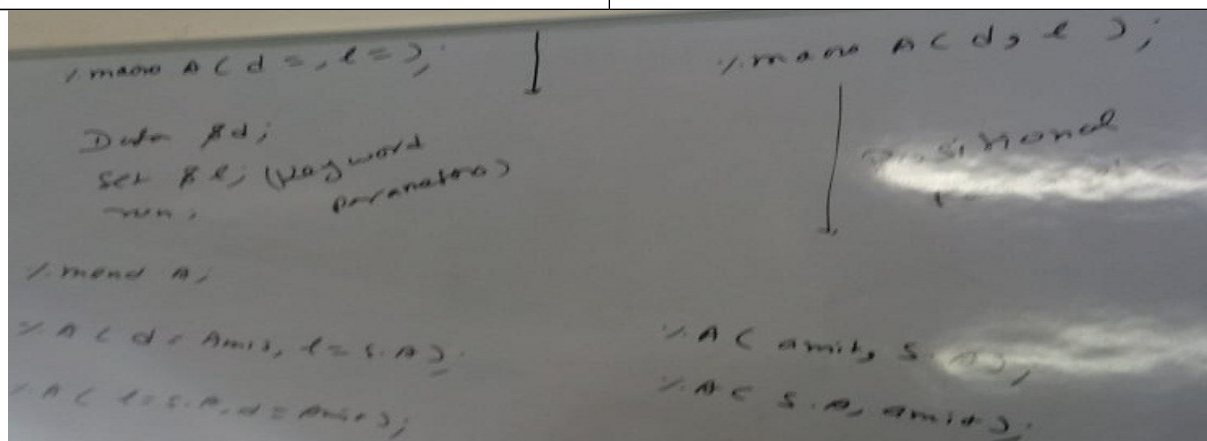 %macro A ( d = , l = );
Data &d;
Set &l; (keyword
parameters)
run;
%mend A;
%A ( d = Amit, l = S.A );
%A ( l = S.A, d = Amit );
%macro A ( d, l );
Positional
%A ( amit, S.A );
%A ( S.A, amit );